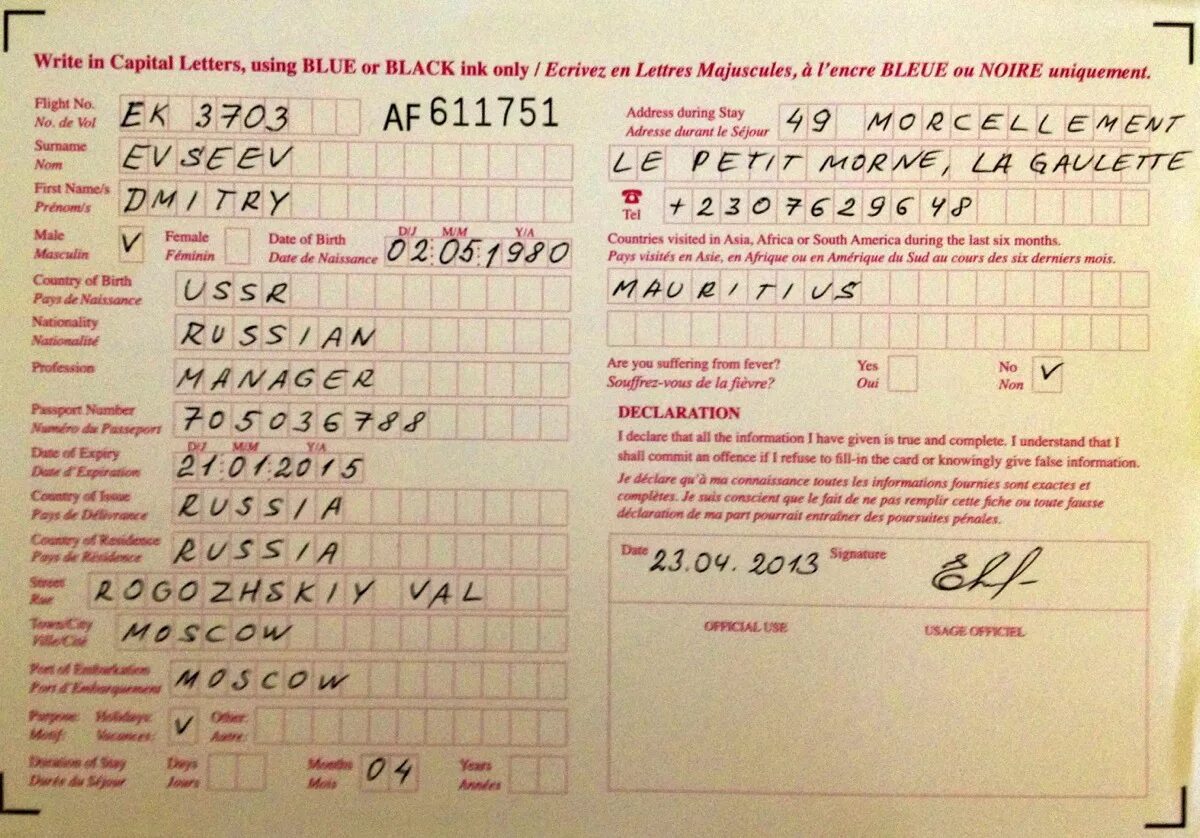 Write in Capital Letters, using BLUE or BLACK ink only / Ecrivez en Lettres Majuscules, à l'encre BLEUE ou NOIRE uniquement.
Flight No. EK 3703 AF 611751
No. de Vol
Surname EVSEEV
Nom
First Name/s DMITRY
Prénom/s
Male ✓ Female Date of Birth D/J M/M Y/A 02.05.1980
Masculin Féminin Date de Naissance
Country of Birth USSR
Pays de Naissance
Nationality RUSSIAN
Nationalité
Profession MANAGER
Passport Number 705036788
Numéro du Passeport
Date of Expiry D/J M/M Y/A 21.01.2015
Date d'Expiration
Country of Issue RUSSIA
Pays de Délivrance
Country of Residence RUSSIA
Pays de Résidence
Street ROGOZHSKIY VAL
Rue
Town/City MOSCOW
Ville/Cité
Port of Embarkation MOSCOW
Port d'Embarquement
Purpose: Holidays: ✓ Other:
Motif: Vacances: Autre:
Duration of Stay Days Months 04 Years
Durée du Séjour Jours Mois Années
Address during Stay 49 MORCELLEMENT
Adresse durant le Séjour
LE PETIT MORNE, LA GAULETTE
☎ Tel +2307629648
Countries visited in Asia, Africa or South America during the last six months.
Pays visités en Asie, en Afrique ou en Amérique du Sud au cours des six derniers mois.
MAURITIUS
Are you suffering from fever? Yes No ✓
Souffrez-vous de la fièvre? Oui Non
DECLARATION
I declare that all the information I have given is true and complete. I understand that I
shall commit an offence if I refuse to fill-in the card or knowingly give false information.
Je déclare qu'à ma connaissance toutes les informations fournies sont exactes et
complètes. Je suis conscient que le fait de ne pas remplir cette fiche ou toute fausse
déclaration de ma part pourrait entraîner des poursuites pénales.
Date 23.04.2013 Signature
OFFICIAL USE USAGE OFFICIEL